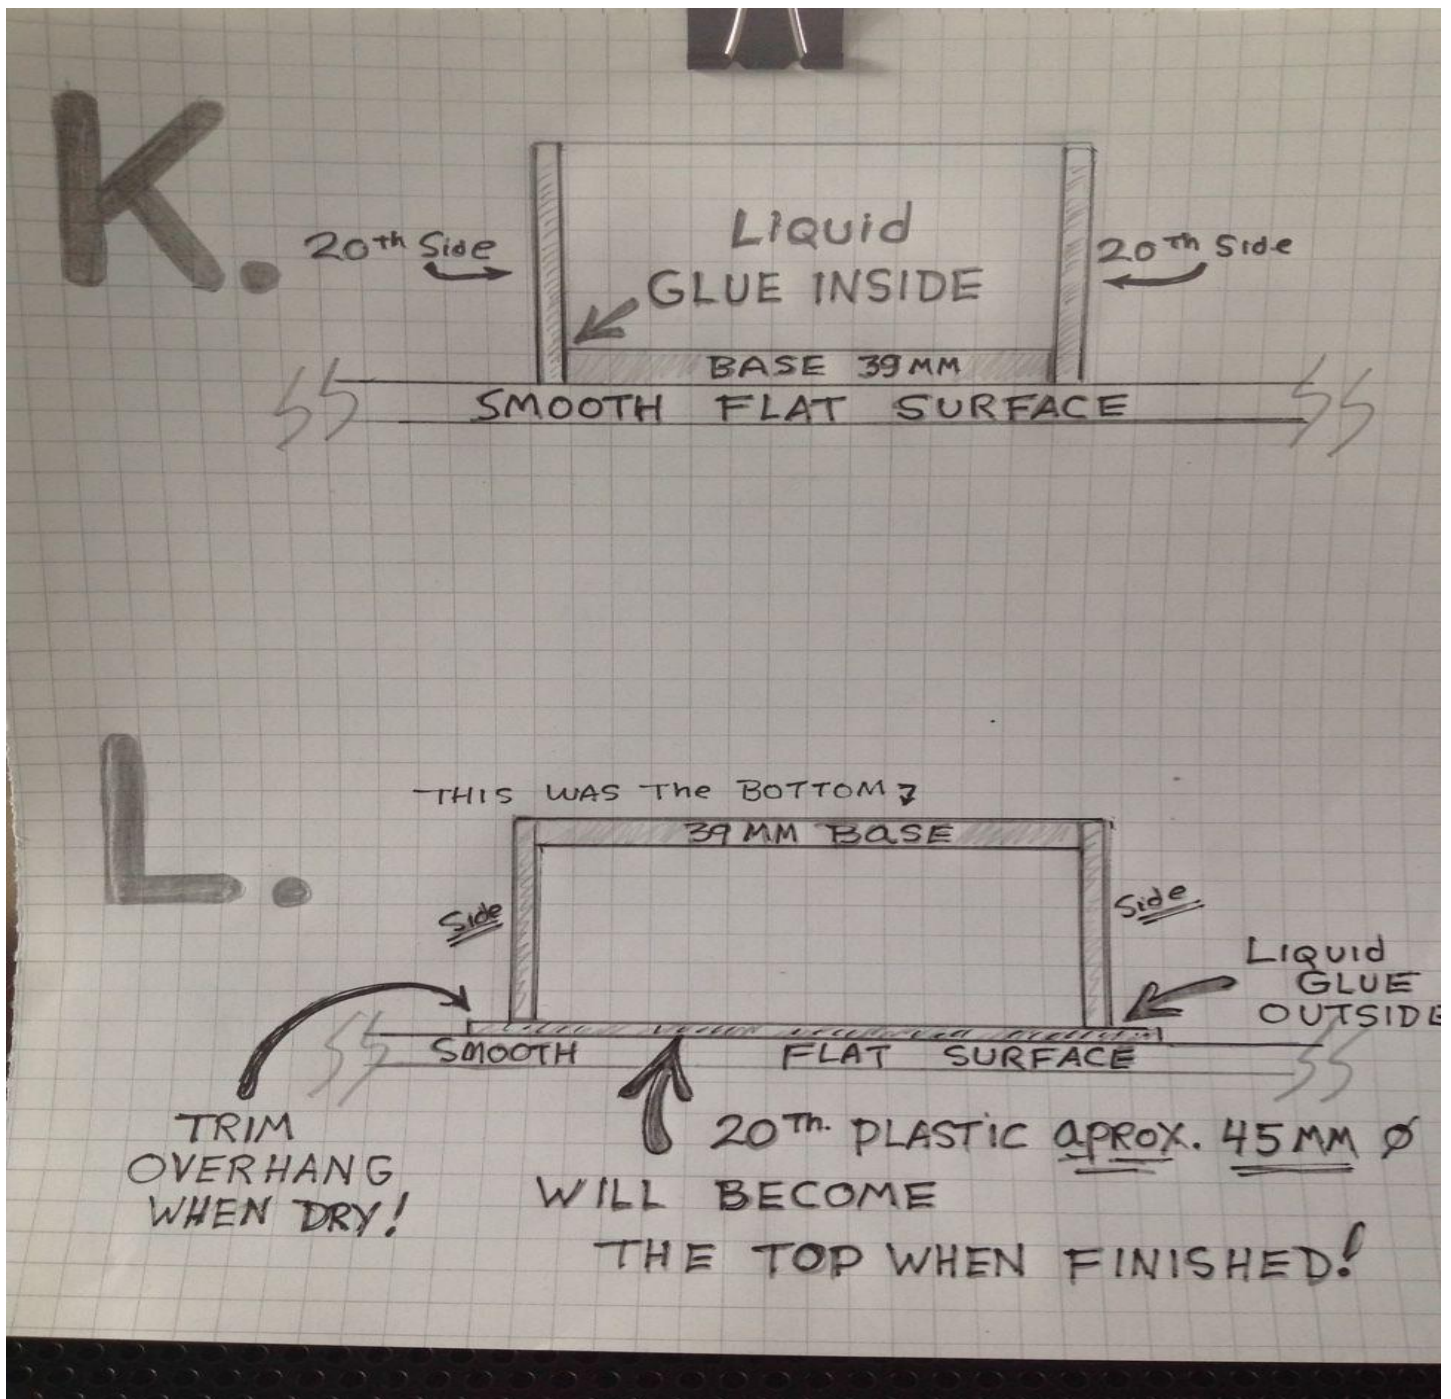 K.
20th Side
Liquid
GLUE INSIDE
20Th Side
BASE 39 MM
SMOOTH FLAT SURFACE
L.
THIS WAS The BOTTOM
39 MM BaSE
Side
Side
Liquid
GLUE
OUTSIDE
SMOOTH FLAT SURFACE
TRIM
OVERHANG
WHEN DRY!
20Th. PLASTIC aPROX. 45 MM Ø
WILL BECOME
THE TOP WHEN FINISHED!